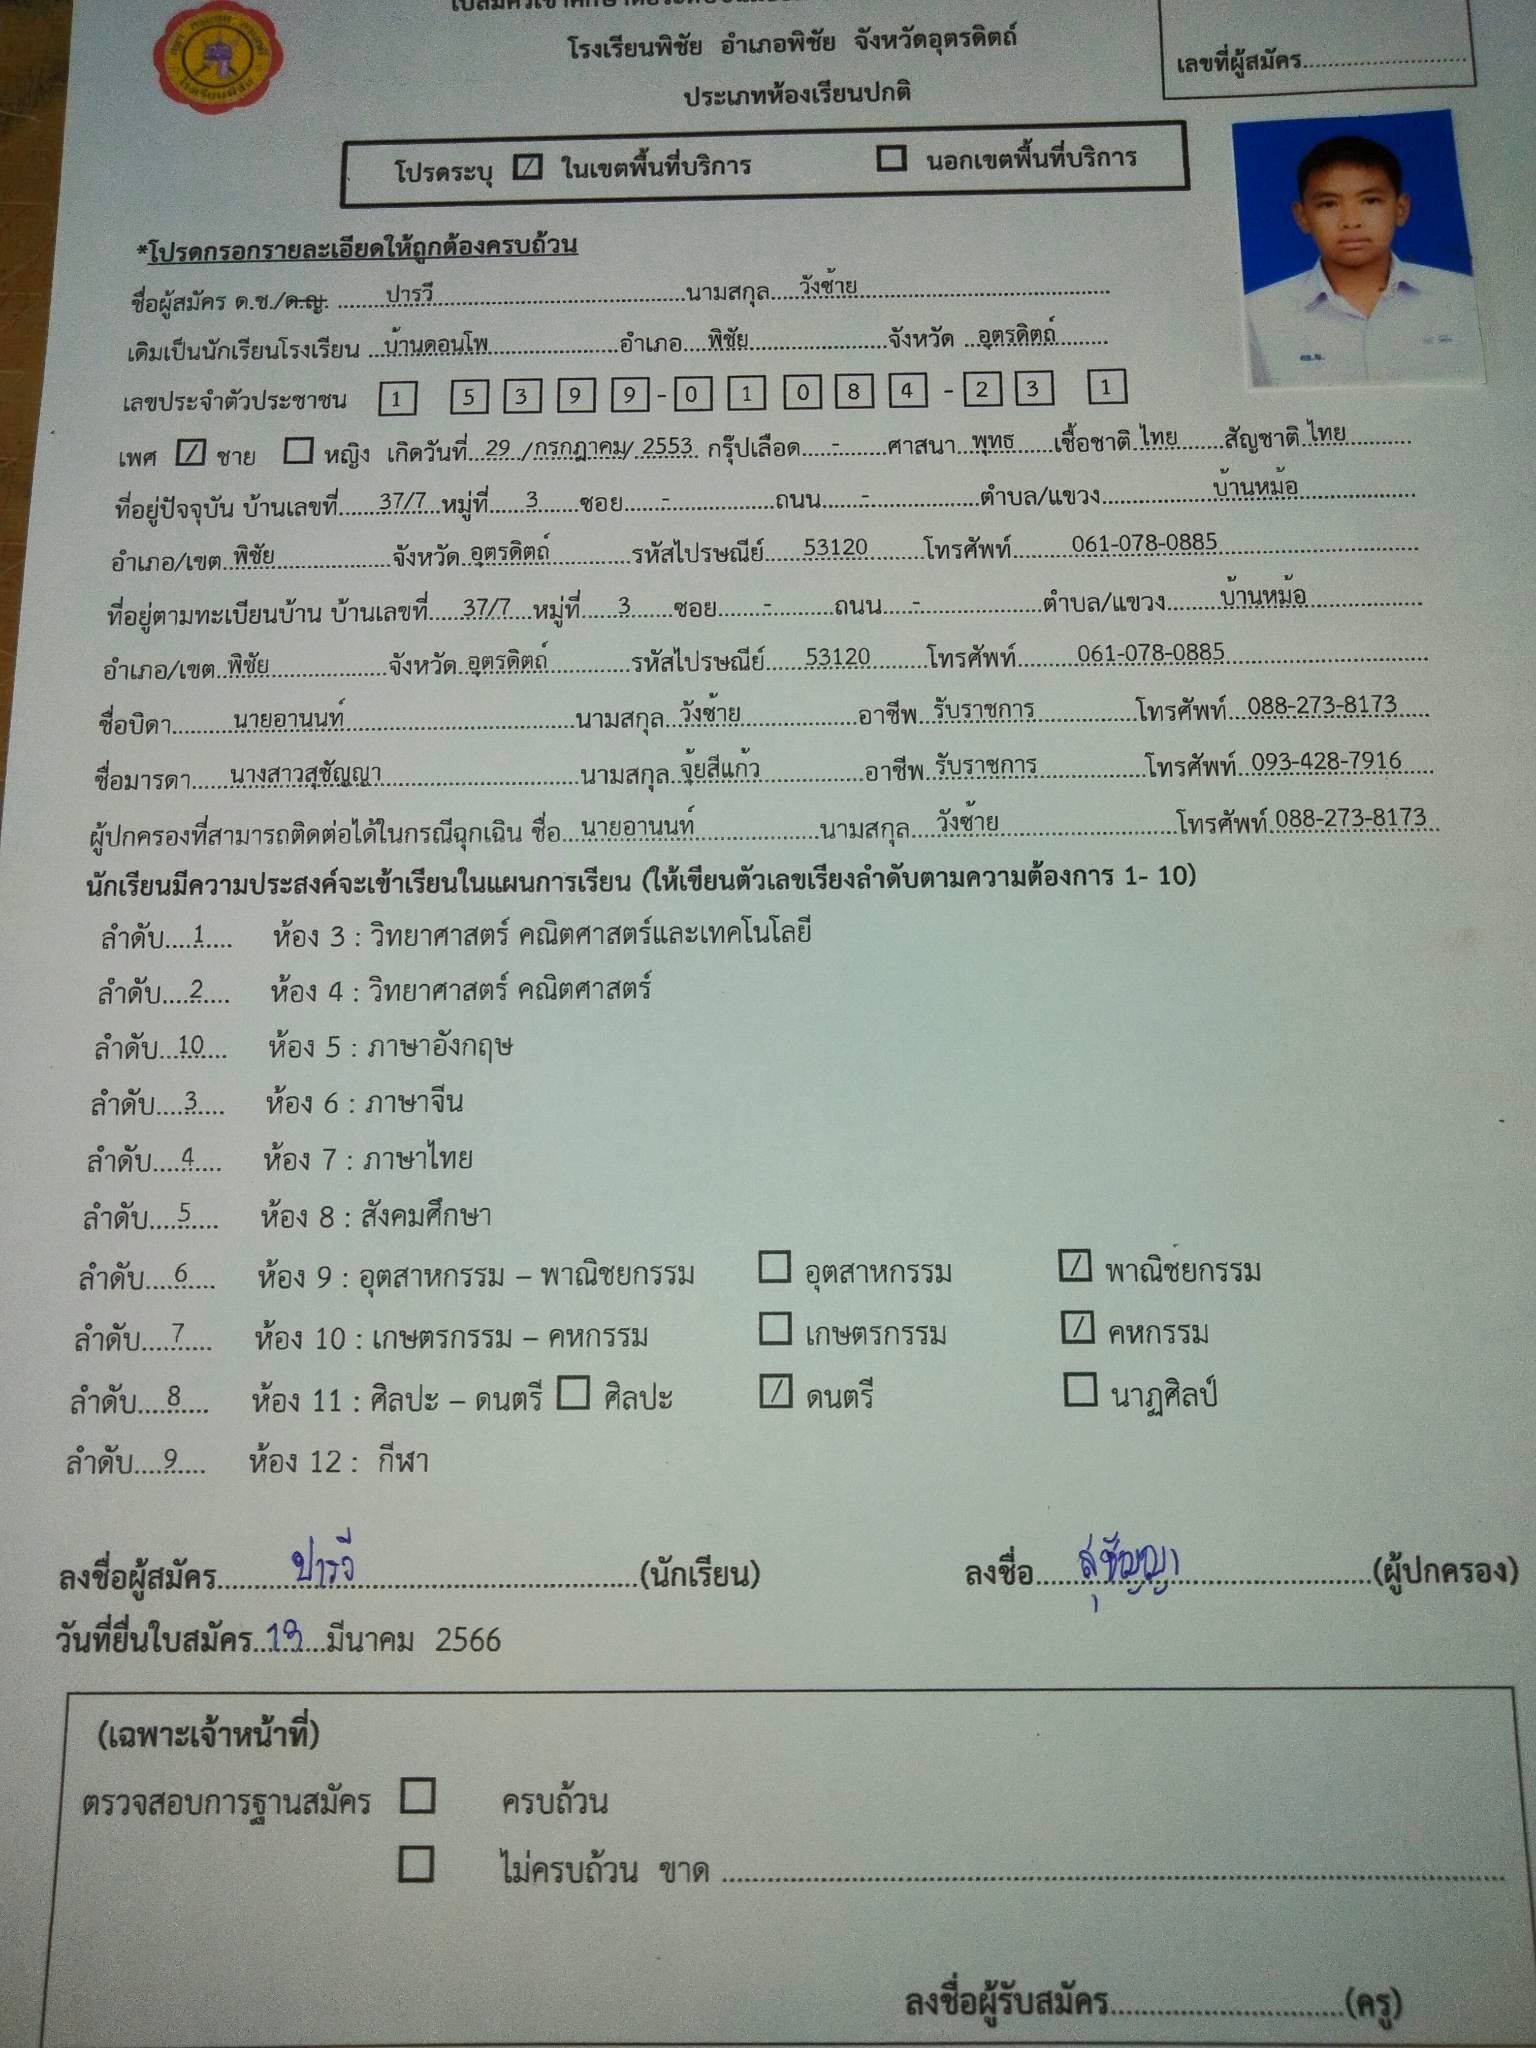 โรงเรียนพิชัย อำเภอพิชัย จังหวัดอุตรดิตถ์
เลขที่ผู้สมัคร..........................
ประเภทห้องเรียนปกติ
โปรดระบุ ☑ ในเขตพื้นที่บริการ ☐ นอกเขตพื้นที่บริการ
*โปรดกรอกรายละเอียดให้ถูกต้องครบถ้วน
ชื่อผู้สมัคร ด.ช./ด.ญ. ......ปารวี......นามสกุล....วังซ้าย......
เดิมเป็นนักเรียนโรงเรียน ..บ้านดอนโพ......อำเภอ....พิชัย......จังหวัด ..อุตรดิตถ์......
เลขประจำตัวประชาชน 1 5 3 9 9 - 0 1 0 8 4 - 2 3 1
เพศ ☑ ชาย ☐ หญิง เกิดวันที่...29.../กรกฎาคม/ 2553 กรุ๊ปเลือด....-......ศาสนา..พุทธ......เชื้อชาติ ไทย......สัญชาติ ไทย......
ที่อยู่ปัจจุบัน บ้านเลขที่......37/7..หมู่ที่......3......ซอย......-......ถนน......-......ตำบล/แขวง......บ้านหม้อ......
อำเภอ/เขต..พิชัย......จังหวัด..อุตรดิตถ์......รหัสไปรษณีย์......53120......โทรศัพท์......061-078-0885......
ที่อยู่ตามทะเบียนบ้าน บ้านเลขที่......37/7...หมู่ที่......3......ซอย......-......ถนน....-......ตำบล/แขวง......บ้านหม้อ......
อำเภอ/เขต..พิชัย......จังหวัด..อุตรดิตถ์......รหัสไปรษณีย์......53120......โทรศัพท์......061-078-0885......
ชื่อบิดา......นายอานนท์......นามสกุล..วังซ้าย......อาชีพ..รับราชการ......โทรศัพท์...088-273-8173....
ชื่อมารดา......นางสาวสุชัญญา......นามสกุล..จุ้ยสีแก้ว......อาชีพ รับราชการ......โทรศัพท์...093-428-7916....
ผู้ปกครองที่สามารถติดต่อได้ในกรณีฉุกเฉิน ชื่อ...นายอานนท์......นามสกุล....วังซ้าย......โทรศัพท์ 088-273-8173..
นักเรียนมีความประสงค์จะเข้าเรียนในแผนการเรียน (ให้เขียนตัวเลขเรียงลำดับตามความต้องการ 1- 10)
ลำดับ....1.... ห้อง 3 : วิทยาศาสตร์ คณิตศาสตร์และเทคโนโลยี
ลำดับ....2.... ห้อง 4 : วิทยาศาสตร์ คณิตศาสตร์
ลำดับ...10.... ห้อง 5 : ภาษาอังกฤษ
ลำดับ....3.... ห้อง 6 : ภาษาจีน
ลำดับ....4.... ห้อง 7 : ภาษาไทย
ลำดับ....5.... ห้อง 8 : สังคมศึกษา
ลำดับ....6.... ห้อง 9 : อุตสาหกรรม – พาณิชยกรรม ☐ อุตสาหกรรม ☑ พาณิชยกรรม
ลำดับ....7.... ห้อง 10 : เกษตรกรรม – คหกรรม ☐ เกษตรกรรม ☑ คหกรรม
ลำดับ....8.... ห้อง 11 : ศิลปะ – ดนตรี ☐ ศิลปะ ☑ ดนตรี ☐ นาฏศิลป์
ลำดับ....9.... ห้อง 12 : กีฬา
ลงชื่อผู้สมัคร........ปารวี..................(นักเรียน) ลงชื่อ....สุชัญญา..................(ผู้ปกครอง)
วันที่ยื่นใบสมัคร......มีนาคม 2566
(เฉพาะเจ้าหน้าที่)
ตรวจสอบการฐานสมัคร ☐ ครบถ้วน
☐ ไม่ครบถ้วน ขาด ..................................................
ลงชื่อผู้รับสมัคร..............................(ครู)